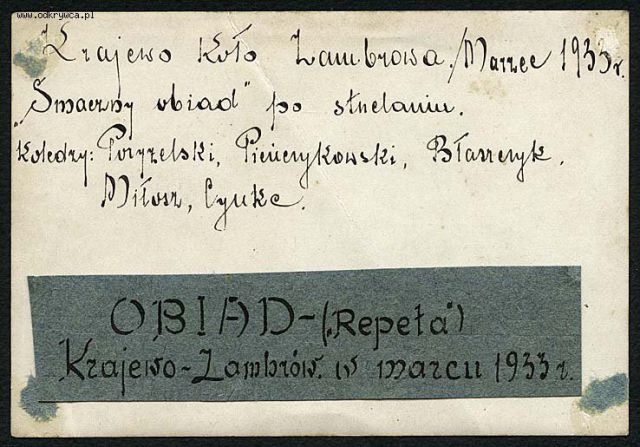 www.odkrywca.pl
Krajewo koło Zambrowa / Marzec 1933 r.
"Smaczny obiad" po strzelaniu.
Koledzy: Pieńczykowski, Błaszczyk,
Miłosz, Cyuke.
OBIAD-("Repeta")
Krajewo-Zambrów. w marcu 1933 r.